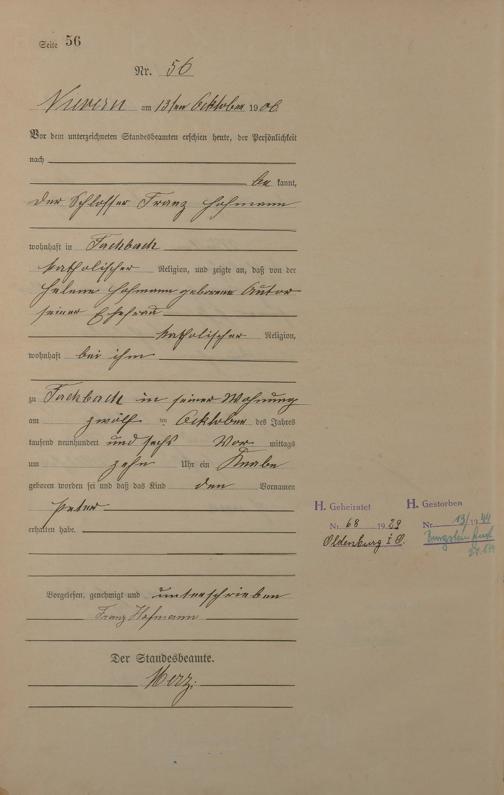 Seite 56
Nr. 56
Nievern am 13ten Oktober 1906
Vor dem unterzeichneten Standesbeamten erschien heute, der Persönlichkeit
nach
be kannt,
der Schlosser Franz Hofmann
wohnhaft in Fachbach
katholischer Religion, und zeigte an, daß von der
Helene Hofmann geborene Autor
seiner Ehefrau
katholischer Religion,
wohnhaft bei ihm
zu Fachbach in seiner Wohnung
am zwölf ten Oktober des Jahres
tausend neunhundert und sechs Vor mittags
um zehn Uhr ein Knabe
geboren worden sei und daß das Kind den Vornamen
Peter
erhalten habe.
Vorgelesen, genehmigt und unterschrieben
Franz Hofmann
Der Standesbeamte.
Merz
H. Geheiratet
Nr. 68 1929
Oldenburg i O.
H. Gestorben
Nr. 13/1944